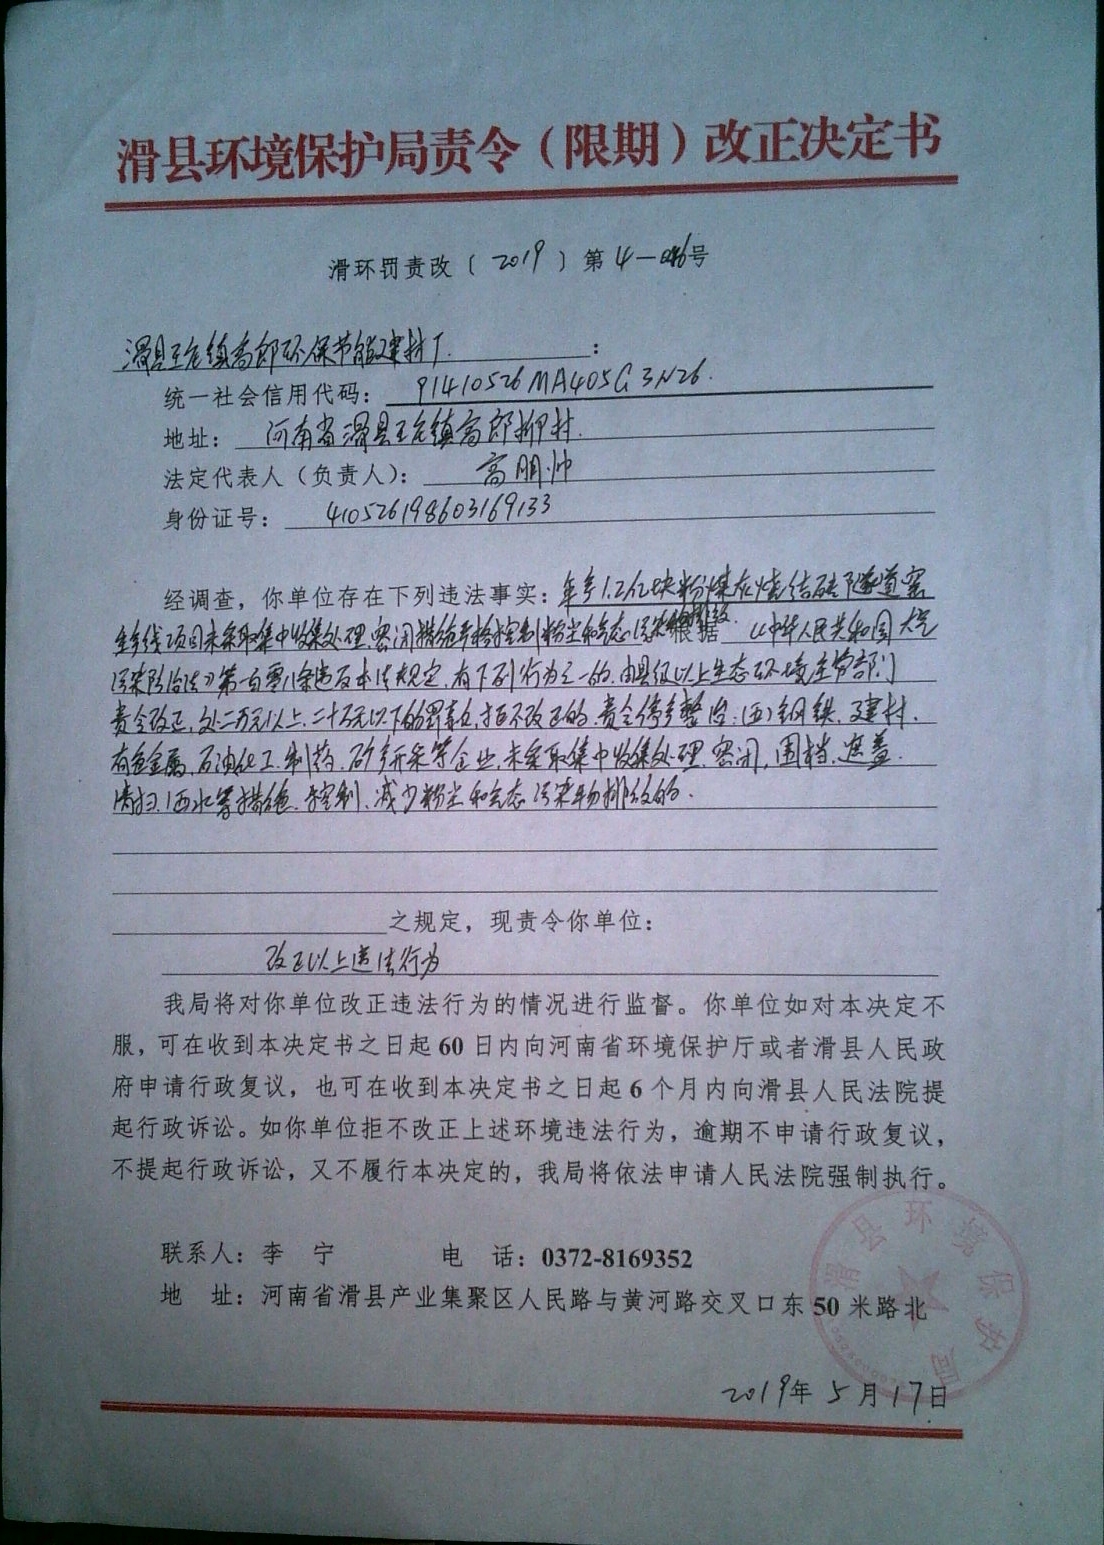 滑县环境保护局责令（限期）改正决定书
滑环罚责改〔2019〕第4—号
滑县王庄镇高郎环保节能建材厂：
统一社会信用代码：91410526MA405G3N26.
地址：河南省滑县王庄镇高郎柳村.
法定代表人（负责人）：高朋帅
身份证号：410526198603169133
经调查，你单位存在下列违法事实：年产1.2亿块粉煤灰烧结砖隧道窑
生产线项目未采取集中收集处理.密闭措施控制粉尘和气态污染物排放.根据 《中华人民共和国大气
污染防治法》第一百零八条违反本法规定,有下列行为之一的,由县级以上生态环境主管部门
责令改正,处二万元以上二十万元以下的罚款;拒不改正的,责令停产整治:(五)钢铁、建材、
有色金属、石油化工、制药、矿产开采等企业,未采取集中收集处理、密闭、围挡、遮盖、
清扫、洒水等措施、控制、减少粉尘和气态污染物排放的.
之规定，现责令你单位：
改正以上违法行为
我局将对你单位改正违法行为的情况进行监督。你单位如对本决定不
服，可在收到本决定书之日起60日内向河南省环境保护厅或者滑县人民政
府申请行政复议，也可在收到本决定书之日起6个月内向滑县人民法院提
起行政诉讼。如你单位拒不改正上述环境违法行为，逾期不申请行政复议，
不提起行政诉讼，又不履行本决定的，我局将依法申请人民法院强制执行。
联系人：李 宁 电 话：0372-8169352
地 址：河南省滑县产业集聚区人民路与黄河路交叉口东50米路北
滑县环境保护局
2019年5月17日